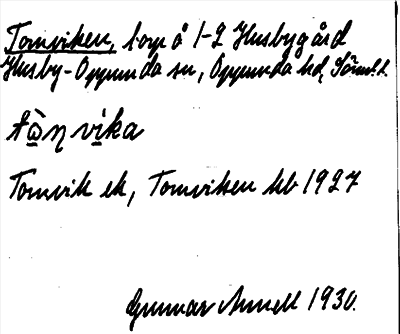 Tomviken, torp å 1-2 Husbygård
Husby-Oppunda sn, Oppunda hd, Söml. l.
tò̱ŋvi̱ka
Tomvik ek, Tomviken kb 1927
Gunnar Annell 1930.